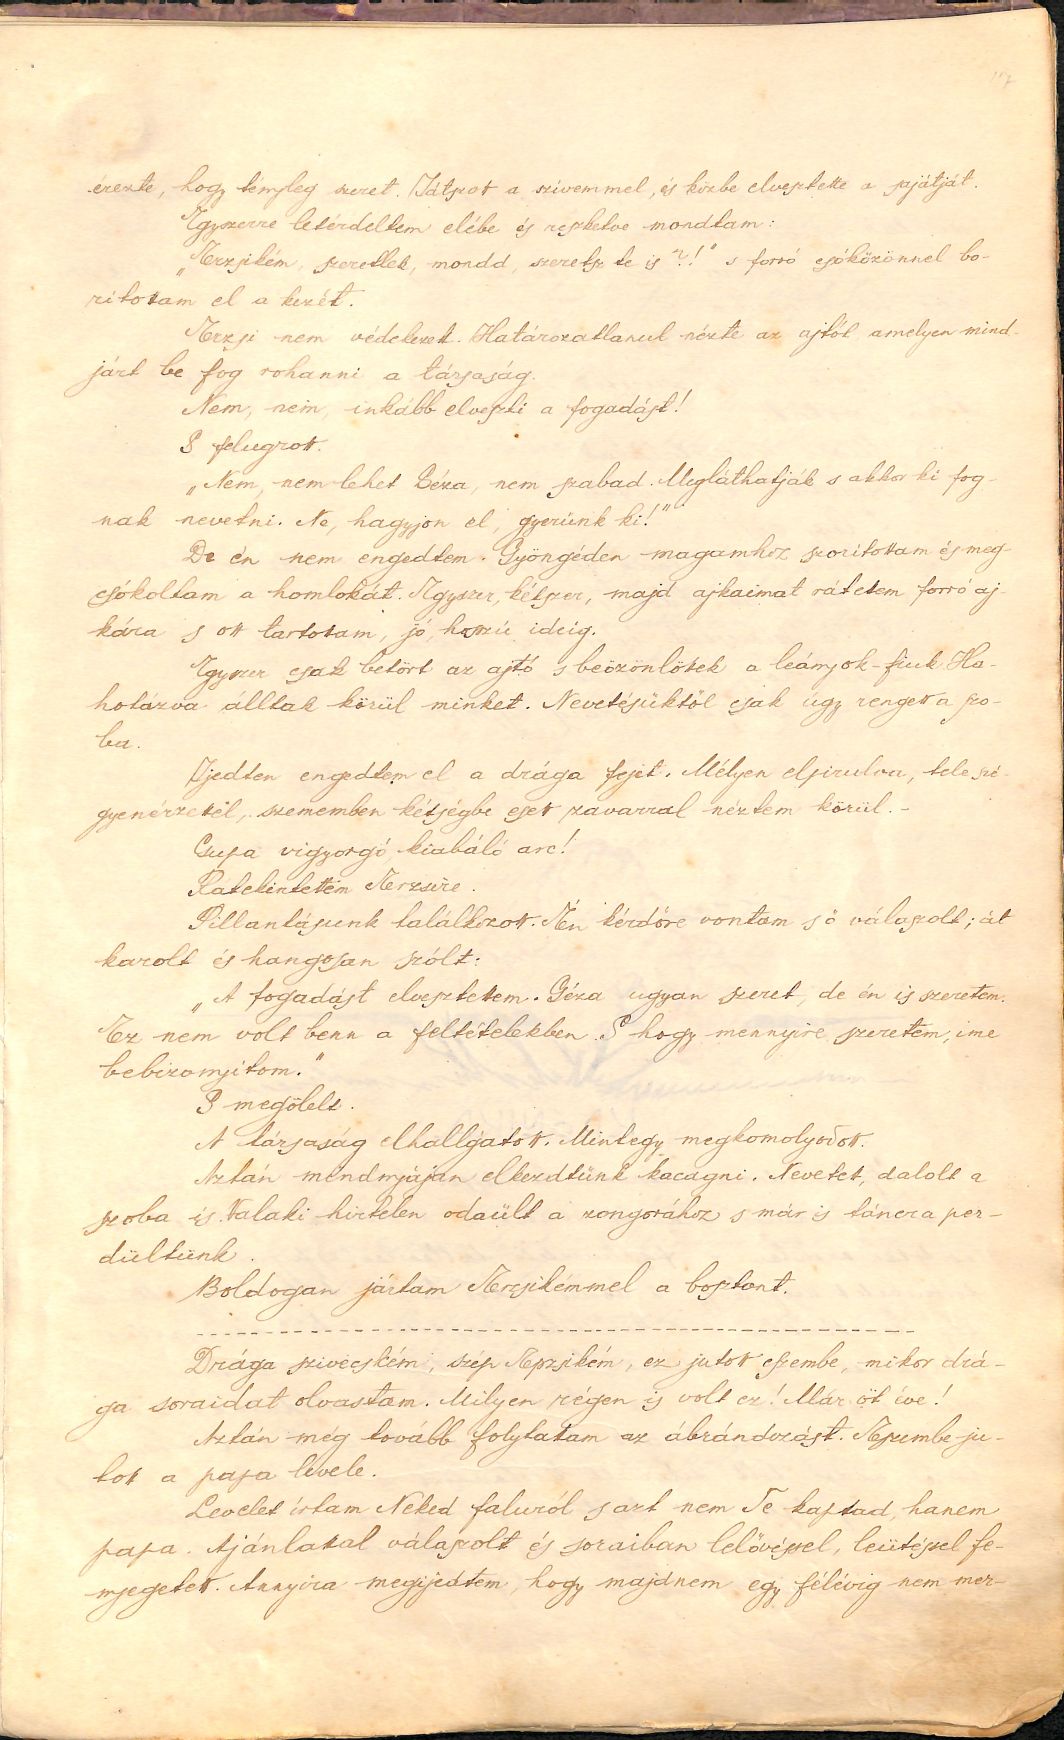 117
érezte, hogy tényleg szeret. Játszott a szívemmel, és közbe elvesztette a sajátját.
Egyszerre letérdeltem elébe és reszketve mondtam:
„Erzsikém, szeretlek, mondd, szeretsz te is ?!" s forró csóközönnel bo-
rítottam el a kezét.
Erzsi nem védekezett. Határozatlanul nézte az ajtót, amelyen mind-
járt be fog rohanni a társaság.
Nem, nem, inkább elveszti a fogadást!
S felugrott.
„Nem, nem lehet Géza, nem szabad. Megláthatják s akkor ki fog-
nak nevetni. Ne, hagyjon el, gyerünk ki!"
De én nem engedtem. Gyöngéden magamhoz szorítottam és meg-
csókoltam a homlokát. Egyszer, kétszer, majd ajkaimat rátetem forró aj-
kára s ott tartottam, jó, hosszú ideig.
Egyszer csak betört az ajtó s beözönlöttek a leányok-fiuk. Ha-
hotázva álltak körül minket. Nevetésüktől csak úgy rengett a szo-
ba.
Ijedten engedtem el a drága fejét. Mélyen elpirulva, tele szé-
gyenérzettel, szememben kétségbe esett zavarral néztem körül. -
Csupa vigyorgó, kiabáló arc!
Rátekintettem Erzsire.
Pillantásunk találkozott. Én kérdőre vontam s ő válaszolt; át
karolt és hangosan szólt:
„A fogadást elvesztettem. Géza ugyan szeret, de én is szeretem.
Ez nem volt benn a feltételekben. S hogy mennyire szeretem, ime
bebizonyitom."
S megölelt.
A társaság elhallgatott. Mintegy megkomolyodott.
Aztán mindnyájan elkezdtünk kacagni. Nevetett, dalolt a
szoba is. Valaki hirtelen odaült a zongorához s már is táncra per-
dültünk.
Boldogan jártam Erzsikémmel a bostont.
Drága szivecském, szép Erzsikém, ez jutott eszembe, mikor drá-
ga soraidat olvastam. Milyen régen is volt ez! Már öt éve!
Aztán még tovább folytattam az ábrándozást. Eszembe ju-
tott a papa levele.
Levelet írtam Neked faluról s azt nem Te kaptad, hanem
papa. Ajánlattal válaszolt és soraiban lelővéssel, leütéssel fe-
nyegetett. Annyira megijedtem, hogy majdnem egy félévig nem mer-